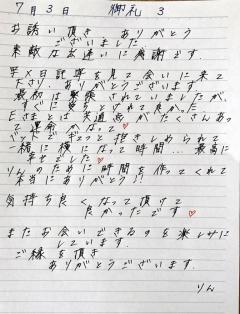 7月3日 御礼 3
お誘い頂き ありがとう
ございました
素敵なお遣いに感謝です.
写メ日記等を見て会いに来て
下さり、ありがとう
最初は緊張されていましたが、
すぐに
Eさまとは共通点がたくさんあっ
て運命かなって♡
ギュッと抱きしめられて
一緒に横になって時間... 最高に
幸せでした♡
りんのために時間を作ってくれて
本当にありがとう!!
気持ち良くなって頂けて
良かったです♡
またお会いできるのを楽しみに
しています.
ご縁を頂き
ありがとうございます.
りん